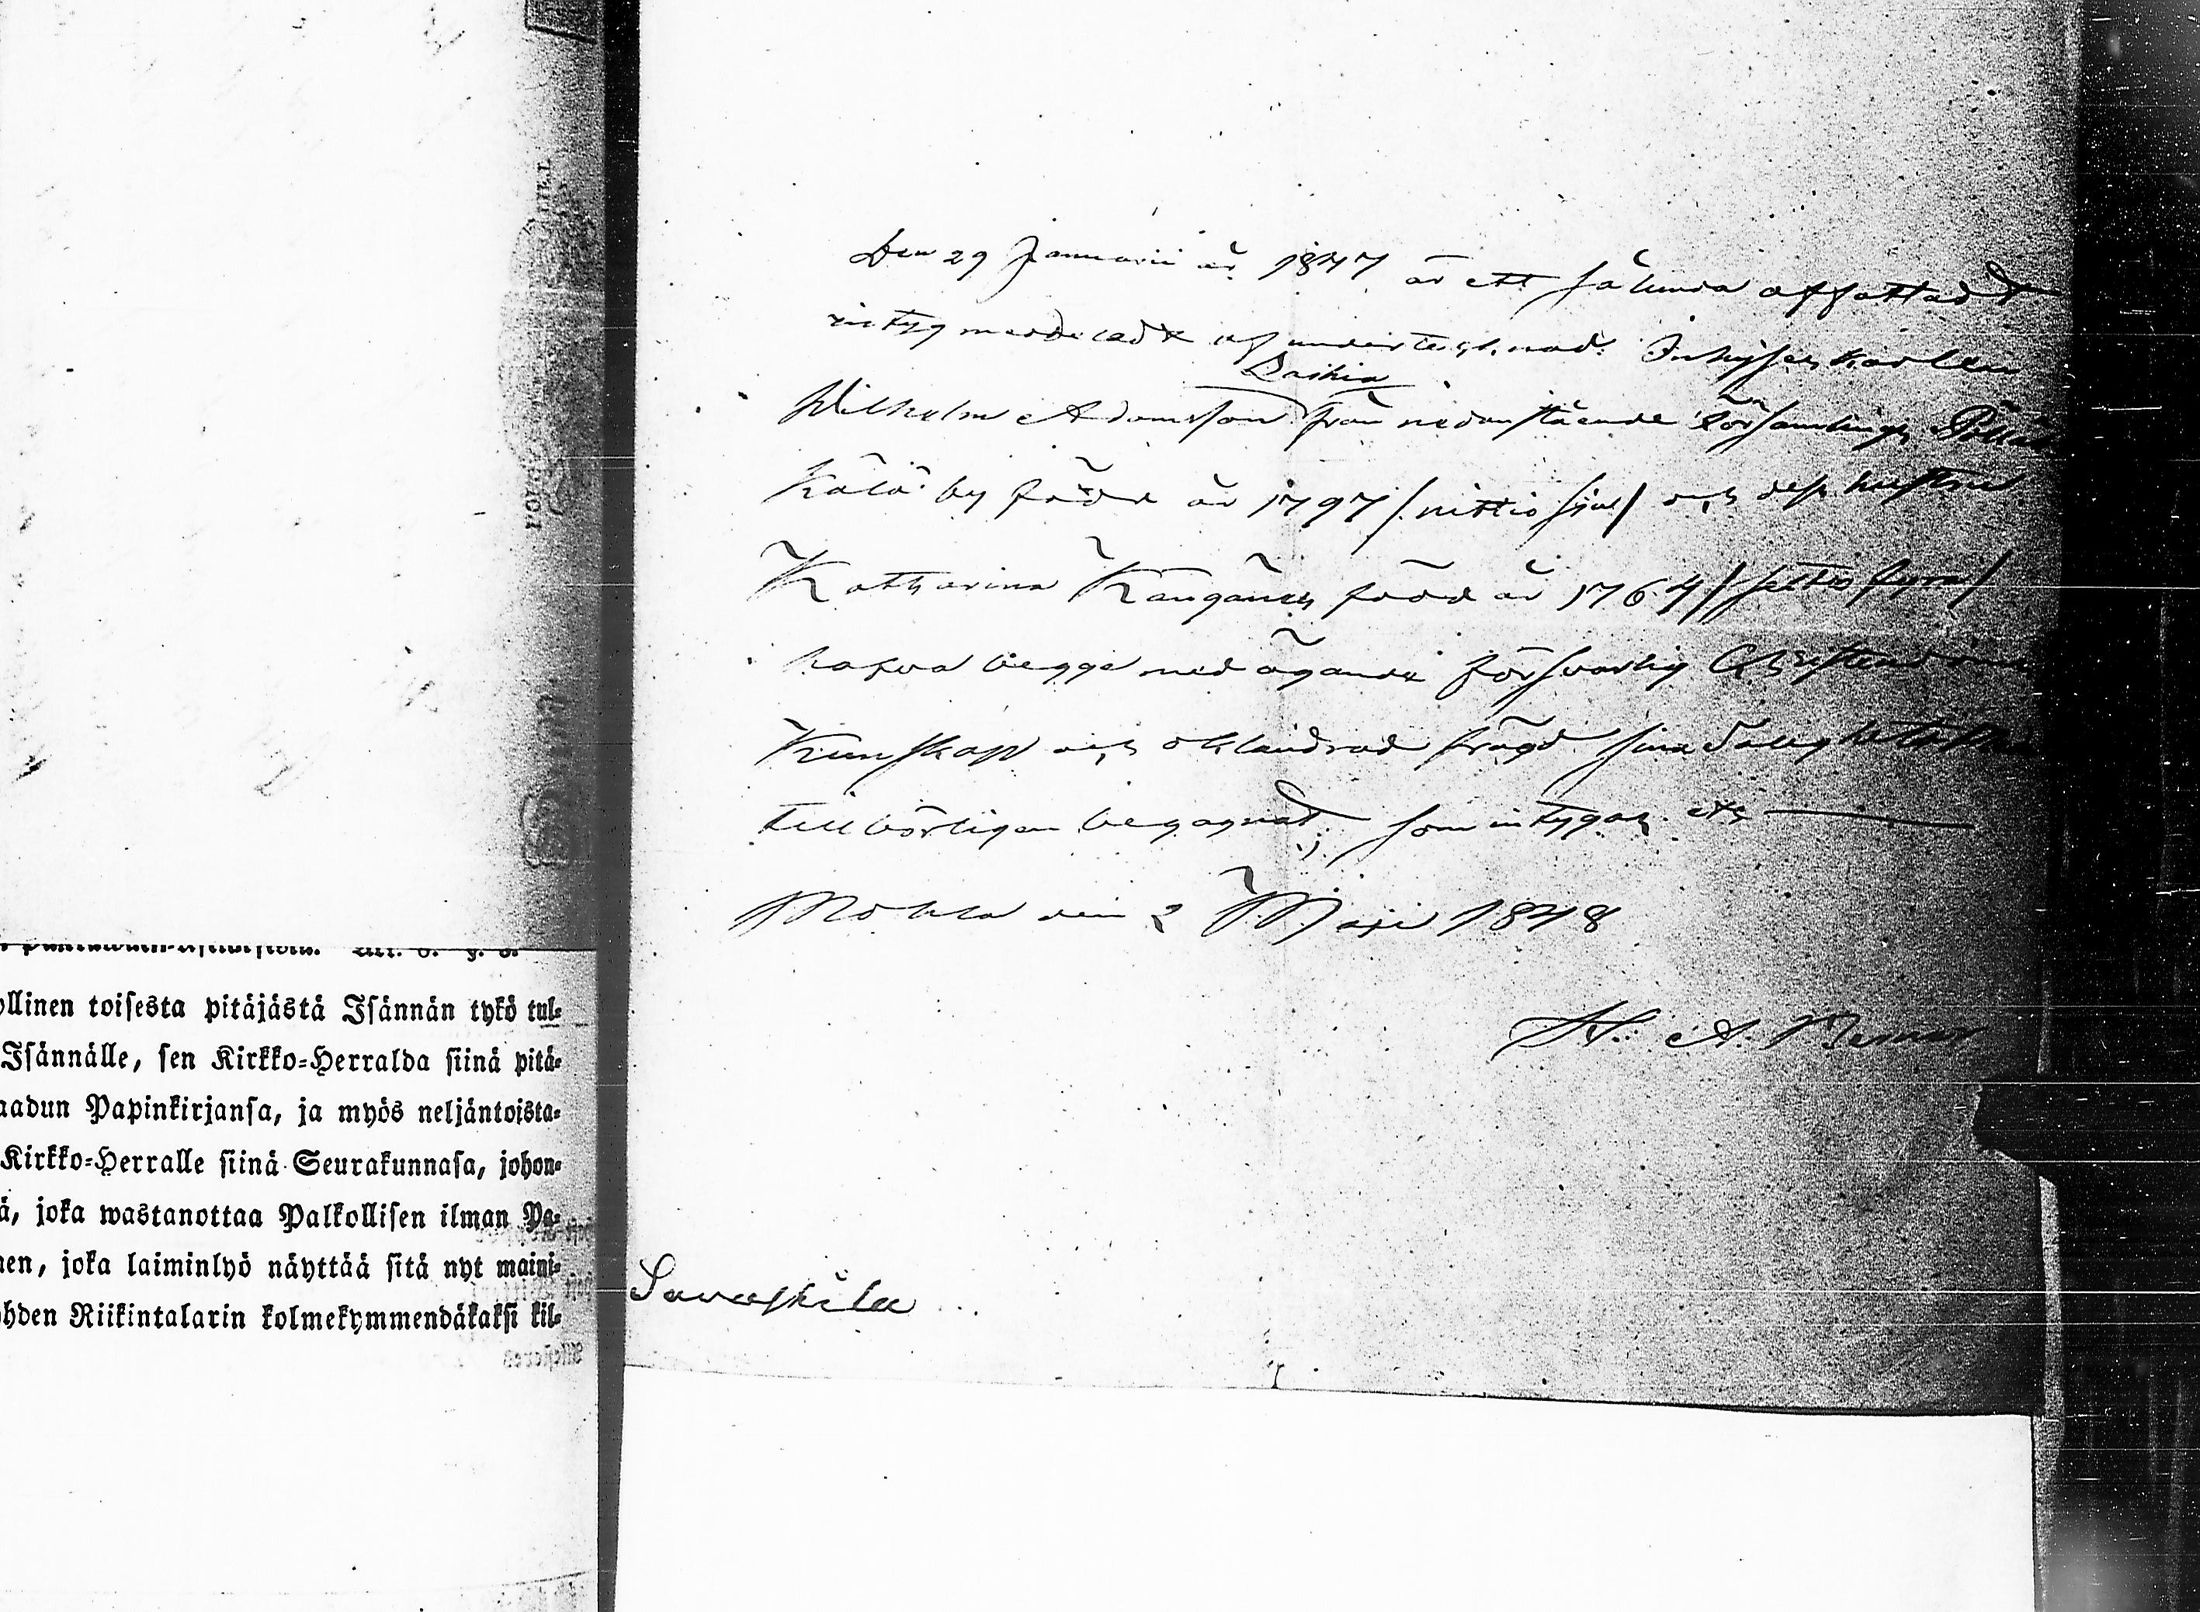 ollinen toisesta pitäjästä Isännän tykö tul=
Isännälle, sen Kirkko=Herralda siinä pitä=
aadun Papinkirjansa, ja myös neljäntoista=
Kirkko=Herralle siinä Seurakunnasa, johon=
ä, joka wastanottaa Palkollisen ilman Pa=
nen, joka laiminlyö näyttää sitä nyt maini=
hden Riikintalarin kolmekymmendäkaksi kil=
Den 29 Januarii år 1847 är ett sålunda affattadt
intyg meddeladt af undertecknad: Inhyses karlen
Wilhelm Adamsson från nedanstående Församlings
by född år 1797 /: nittio sju / och dess hustru
Katharina född år 1764 / settio fyra /
hafva begge med ägande försvarlig Christendoms
Kunskap och oklandrad frägd sina
tillbörligen begagnad; som intygar etc
Mohla den 2 Maji 1848